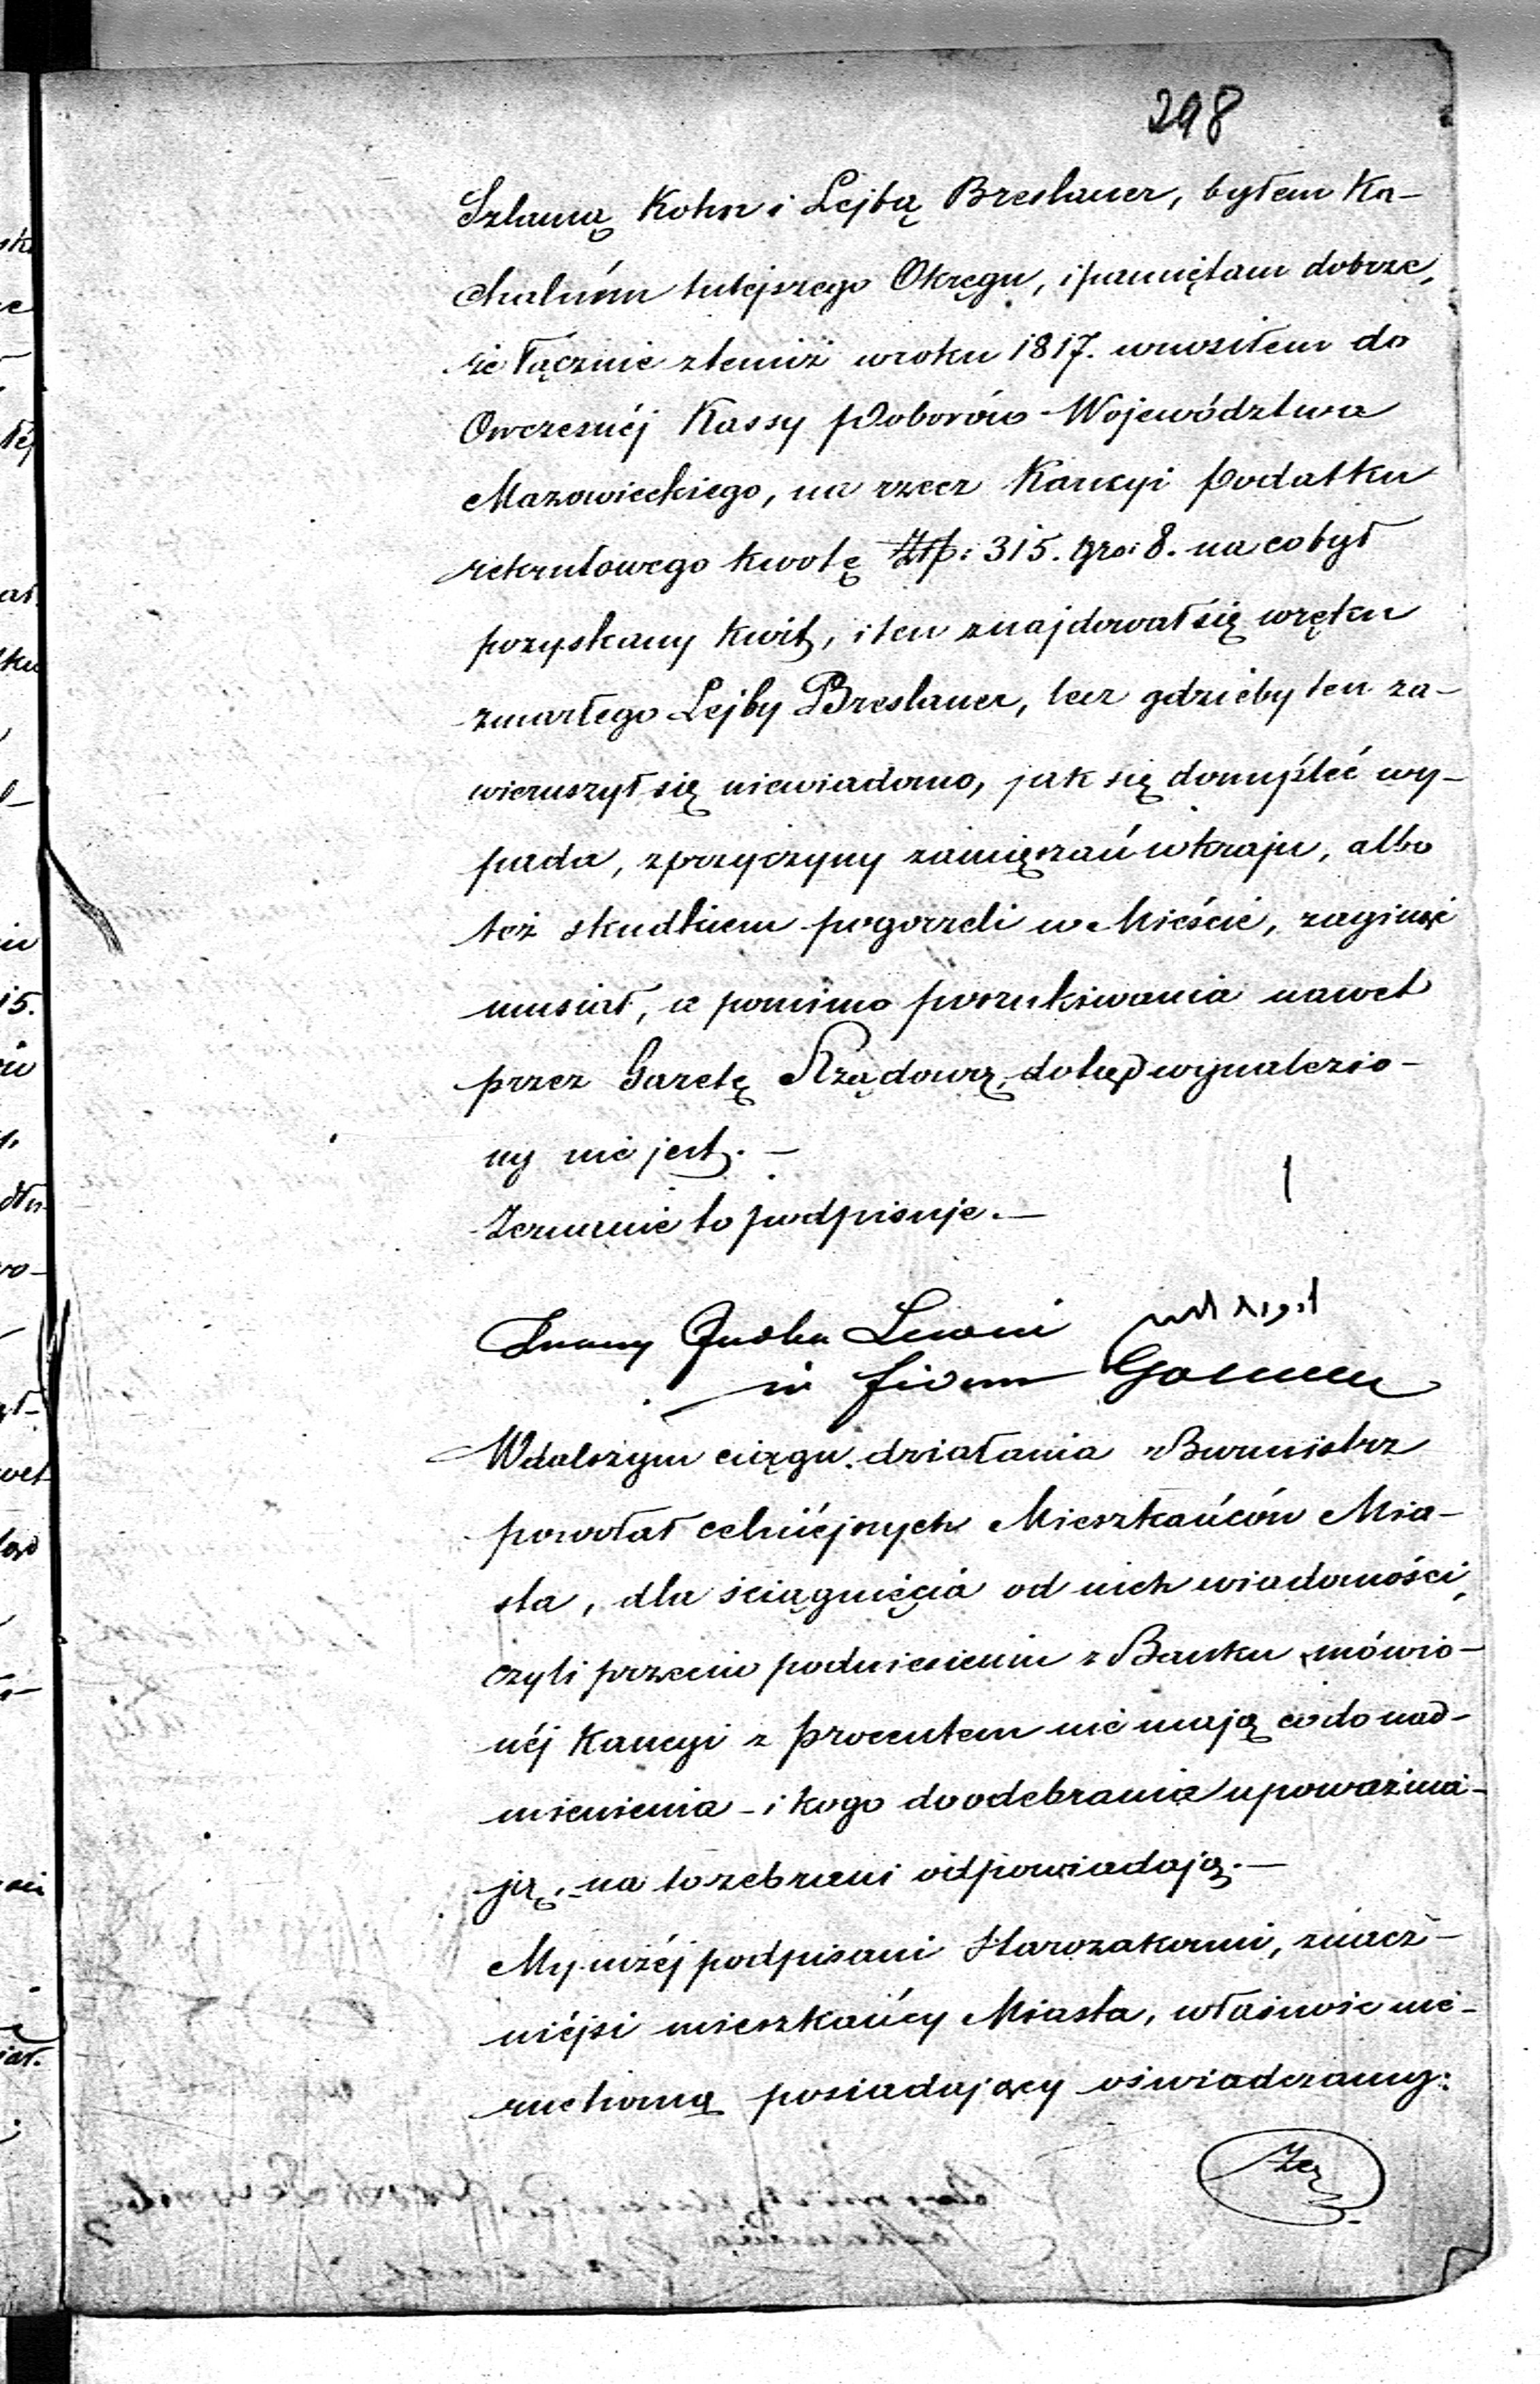 298
Szlamą Kohn i Lejbą Breslauer, byłem Ka-
chalném tutejszego Okręgu, i pamiętam dobrze,
że łącznie z temiż w roku 1817. wnosiłem do
Owczesnéj Kassy Poborów Województwa
Mazowieckiego, na rzecz Kaucyi Podatku
rekrutowego kwotę Złp: 315. gro: 8. na co był
pozyskany kwit, i ten znajdował się w ręku
zmarłego Lejby Breslauer, lecz gdzieby ten za-
wieruszył się niewiadomo, jak się domyśleć wy-
pada, z przyczyny zamięszań w kraju, albo
też skudkiem pogorzeli w Mieście, zaginąć
musiał, a pomimo poszukiwania nawet
przez Gazetę Rządową, dotąd wynalezio-
ny nie jest. —
Zeznanie to podpisuje. —
Znany Judka Lewin
in fidem
W dalszym ciągu działania Burmistrz
powołał celniejszych Mieszkańców Mia-
sta, dla ściągnięcia od nich wiadomości,
czyli przeciw podniesieniu z Banku mówio-
néj Kaucyi z procentem nie mają co do nad-
mienienia - i kogo do odebrania upoważnia-
ją, - na to zebrani odpowiadają. —
My niżéj podpisani Starozakonni, znacz-
niéjsi mieszkańcy Miasta, własność nie-
ruchomą posiadający oświadczamy: